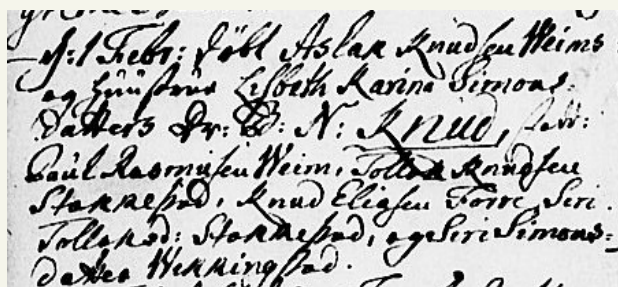 d: 1 Febr: döbt Aslak Knudsen Weims
og Huustrue Lisbeth Karina Simons-
datters Dr: B: N: Knud, fadd:
Paul Rasmusen Weim, Tollak Knudsen
Stakkestad, Knud Eliasen Förre, Siri
Tollaksd: Stakkestad, og Siri Simons=
datter Wikkingstad.